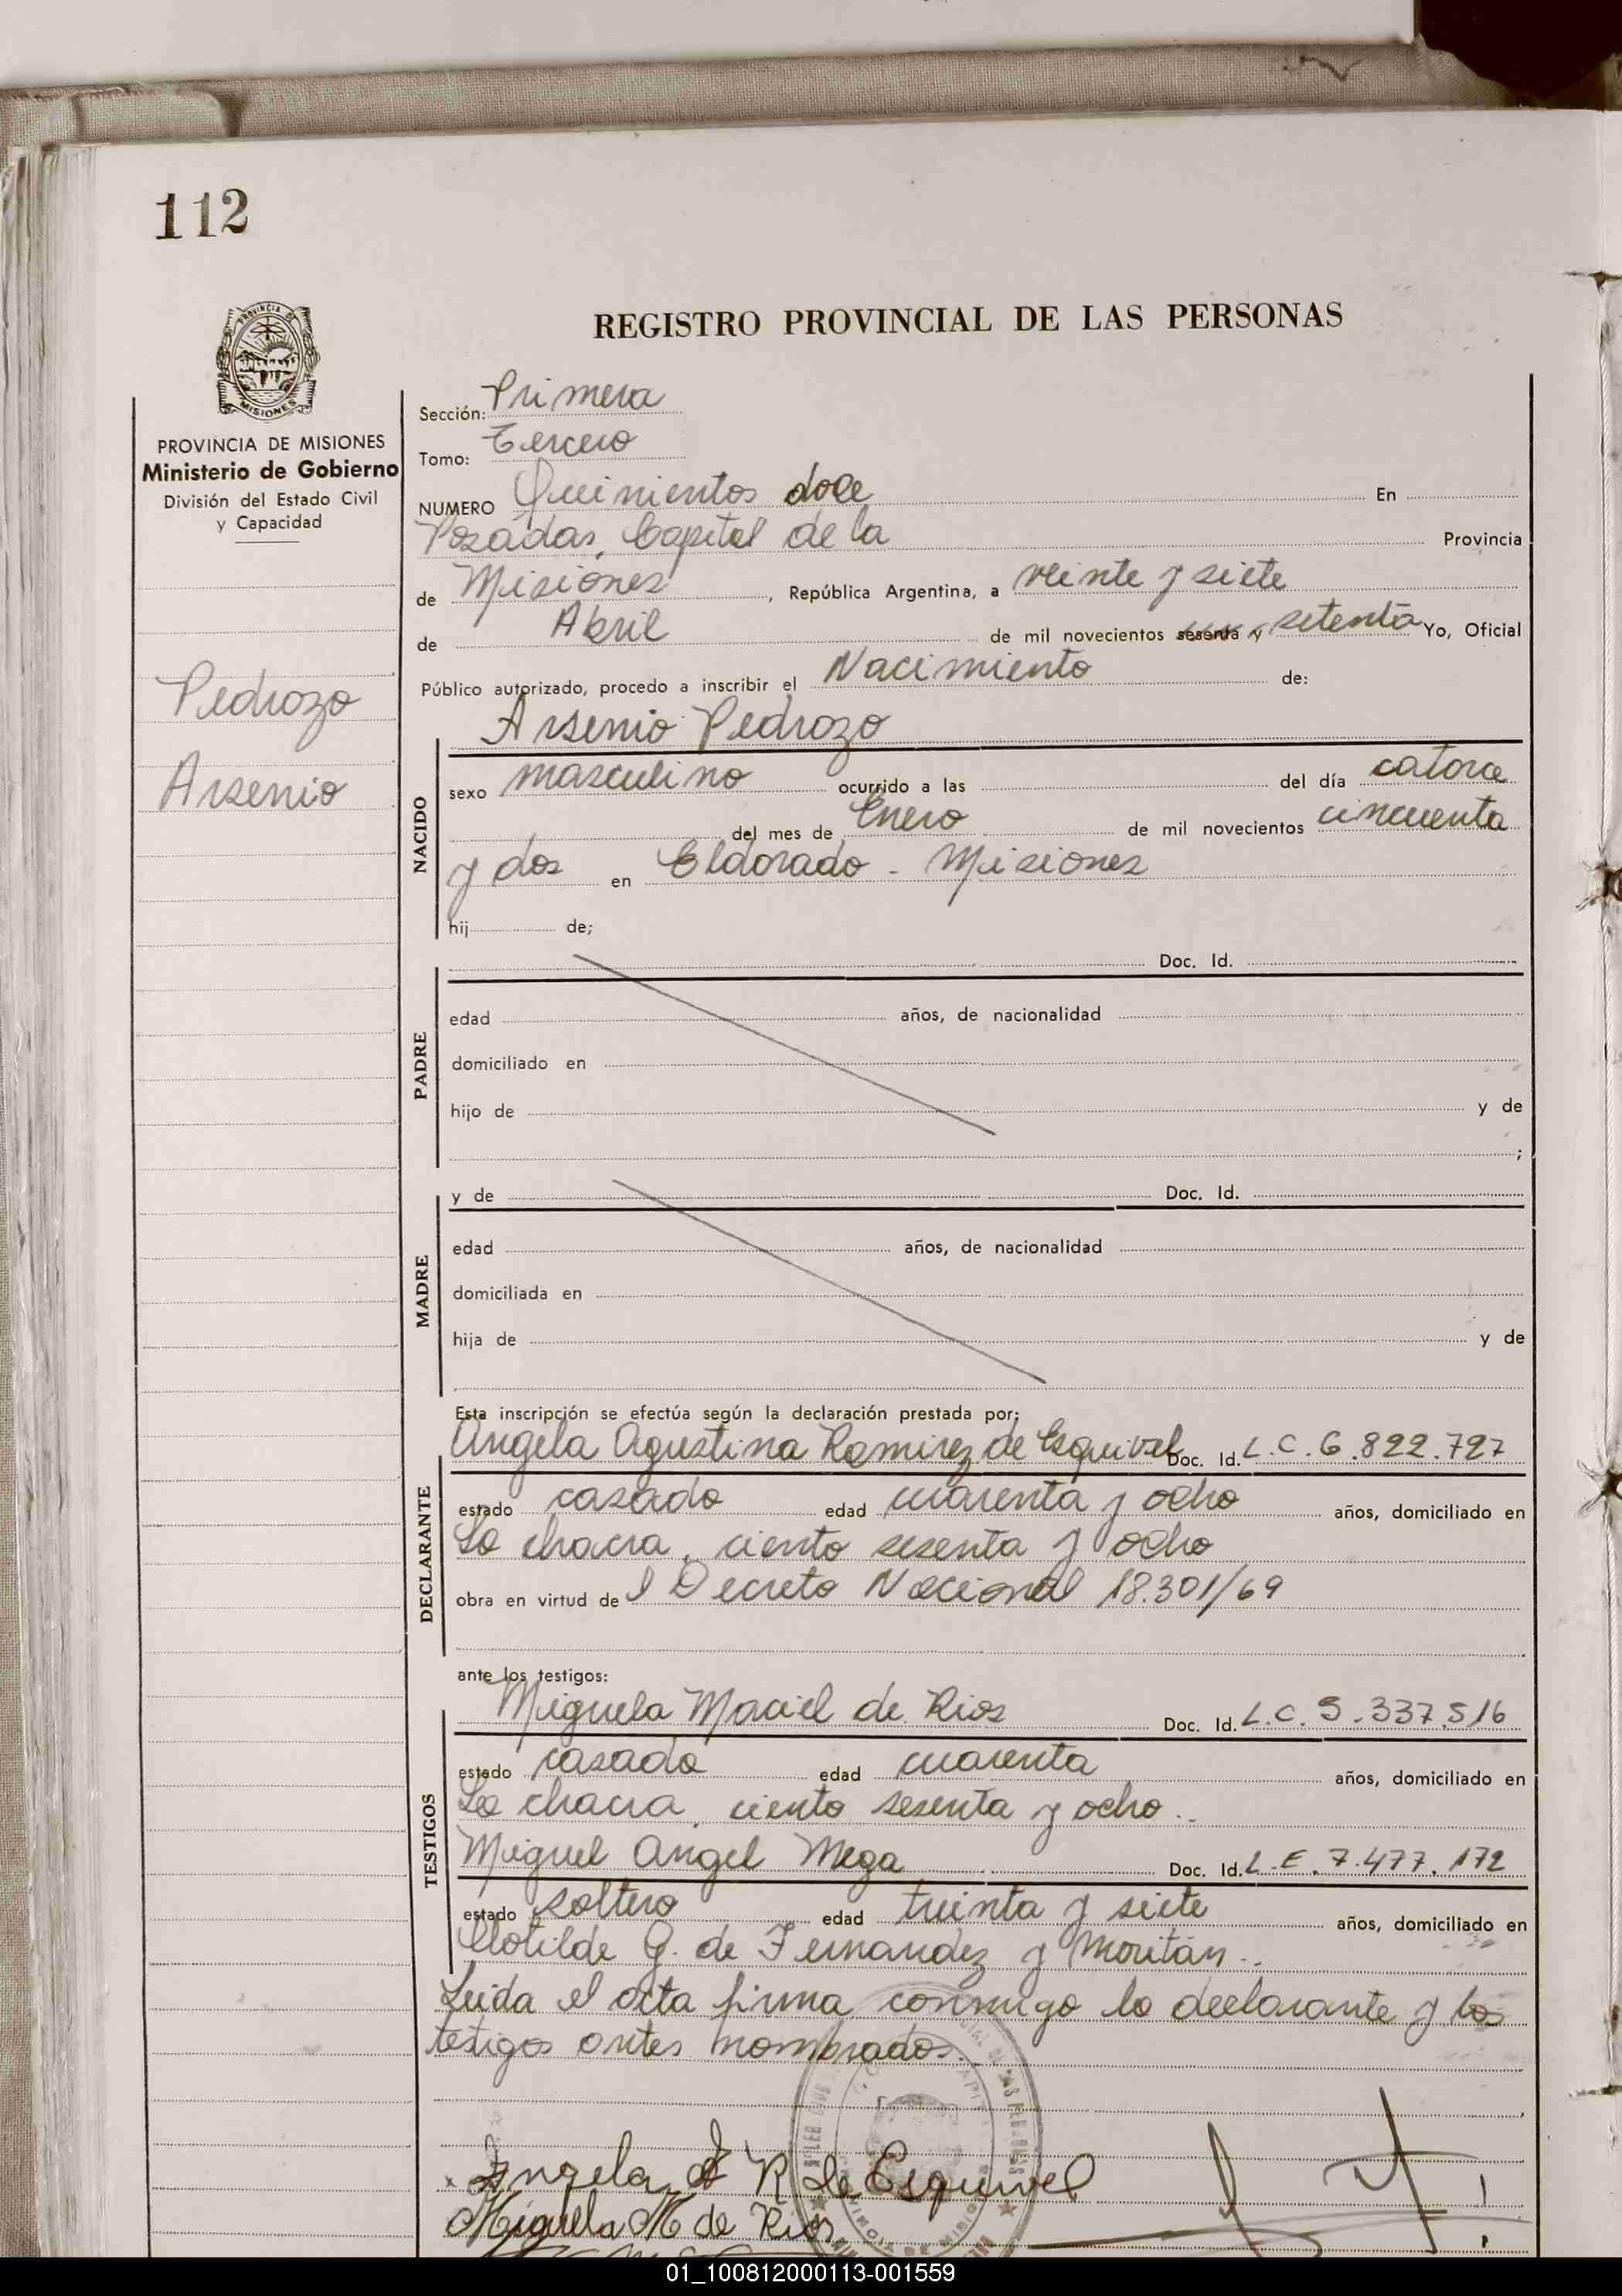 112
REGISTRO PROVINCIAL DE LAS PERSONAS
PROVINCIA DE MISIONES
Ministerio de Gobierno
División del Estado Civil
y Capacidad
Pedrozo
Arsenio
Sección: Primera
Tomo: Tercero
NUMERO Quinientos doce En
Posadas, Capital de la Provincia
de Misiones, República Argentina, a veinte y siete
de Abril de mil novecientos sesenta y setenta Yo, Oficial
Público autorizado, procedo a inscribir el Nacimiento de:
NACIDO
Arsenio Pedrozo
sexo masculino ocurrido a las del día catorce
del mes de Enero de mil novecientos cincuenta
y dos en Eldorado - Misiones
hij de;
PADRE
Doc. Id.
edad años, de nacionalidad
domiciliado en
hijo de y de
;
MADRE
y de Doc. Id.
edad años, de nacionalidad
domiciliada en
hija de y de
Esta inscripción se efectúa según la declaración prestada por:
DECLARANTE
Angela Agustina Ramirez de Esquivel Doc. Id. L.C. 6.822.727
estado casada edad cuarenta y ocho años, domiciliado en
La chacra, ciento sesenta y ocho
obra en virtud de l Decreto Nacional 18.301/69
ante los testigos:
TESTIGOS
Miguela Maciel de Rios Doc. Id. L.C. 5.337.516
estado casada edad cuarenta años, domiciliado en
La chacra, ciento sesenta y ocho.
Miguel Angel Mega Doc. Id. L.E. 7.477.172
estado soltero edad treinta y siete años, domiciliado en
Clotilde G. de Fernandez y Moritán.
Leida el acta firma conmigo la declarante y los
testigos antes nombrados.
Angela A R de Esquivel
Miguela M de Rios
01_100812000113-001559